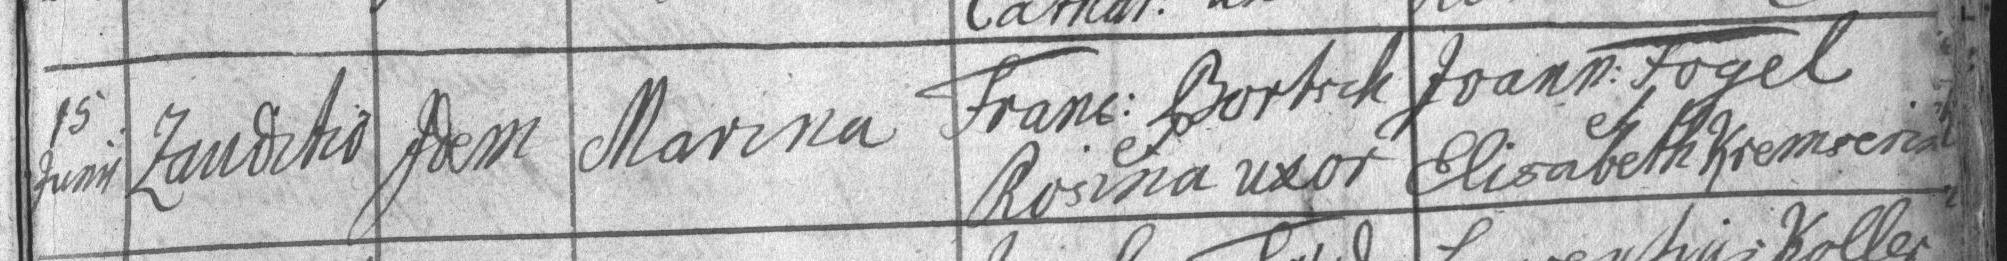 15 Junii Zauditio Idem Marina Franc: Bortsik et Rosina uxor Joann: Fogel et Elisabeth Kremserin
Laurentius Koller